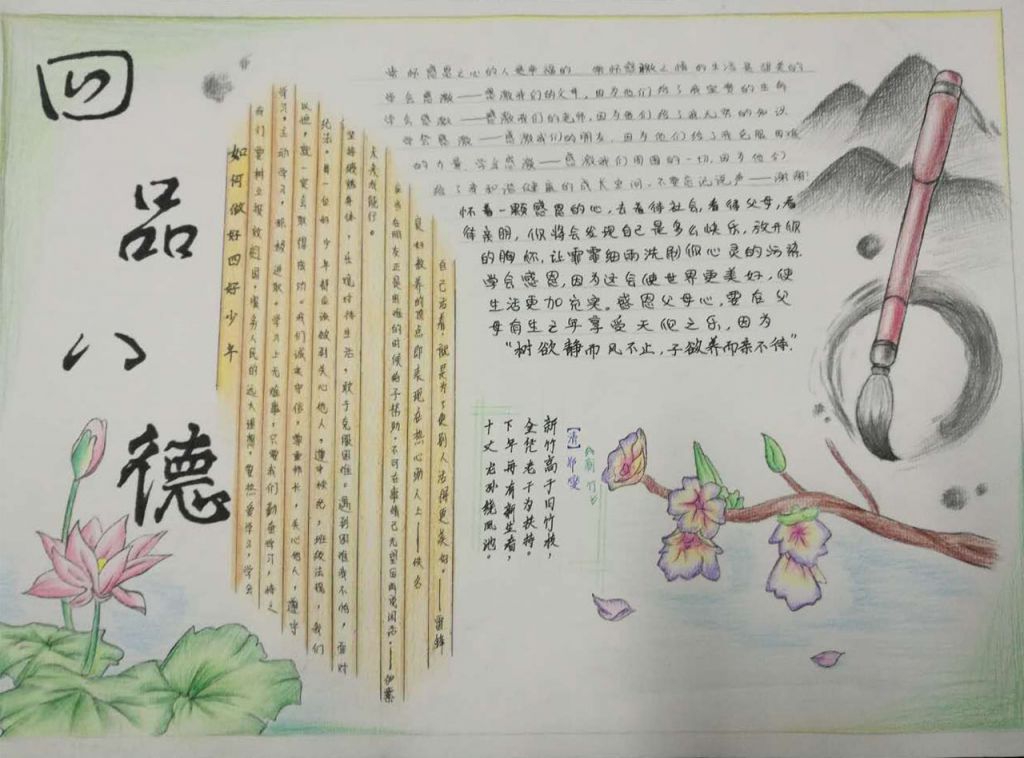 四品八德
常怀感恩之心的人是幸福的 常怀感激之情的生活是甜美的
学会感激——感激我们的父母,因为他们给了我宝贵的生命
学会感激——感激我们的老师,因为他们给了我无穷的知识
学会感激——感激我们的朋友,因为他们给了我克服困难
的力量.学会感激——感激我们周围的一切,因为他们
给了我和谐健康的成长空间.不要忘记说声——谢谢!
怀着一颗感恩的心,去看待社会,看待父母,看
待亲朋,你将会发现自己是多么快乐,放开你
的胸怀,让霏霏细雨洗刷你心灵的污染
学会感恩,因为这会使世界更美好,使
生活更加充实。感恩父母心,要在父
母有生之年享受天伦之乐,因为
“树欲静而风不止,子欲养而亲不待.”
如何做好四好少年
我们要树立报效祖国,服务人民的远大理想,要热爱学习,学会
学习,主动学习,积极进取.学习上无难事,只要我们勤奋学习,持之
以恒,就一定会取得成功.我们诚实守信,尊重师长,关心他人,遵守
纪法。每一位好少年都应该做到关心他人,遵守校纪,班级法规,我们
坚持锻炼身体,乐观对待生活,敢于克服困难。遇到困难我不怕,面对
未来我能行。
应当在朋友正是困难的时候给予帮助,不可在事情已无望后再说闲话.——伊索
良好教养的顶点即表现在热心助人上——佚名
自己活着,就是为了使别人活得更美好.——雷锋
《新竹》
【清】郑燮
新竹高于旧竹枝,
全凭老干为扶持。
下年再有新生者,
十丈龙孙绕凤池。